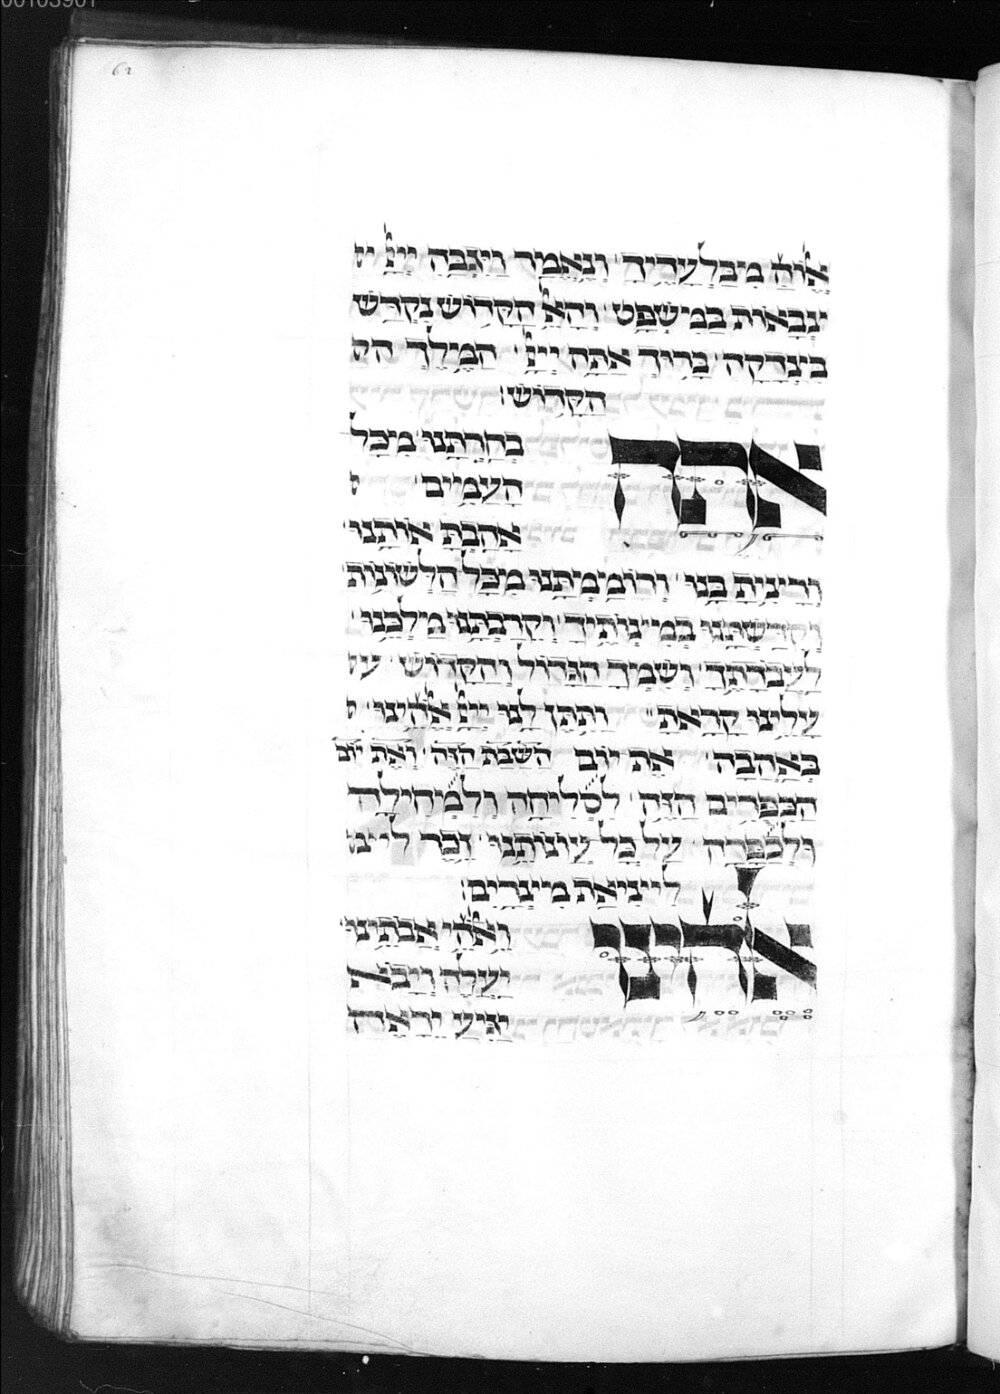 00103901
62
אלוה מבלעדיך ונאמר ויגבה ייי י
צבאות במשפט והאל הקדוש נקדש
בצדקה ברוך אתה ייי המלך הק
הקדוש׃
אתה
בחרתנו מכל
העמים
אהבת אותנו
ורצית בנו ורוממתנו מכל הלשונות
וקדשתנו במצותיך וקרבתנו מלכנו
לעבודתך ושמך הגדול והקדוש ע
עלינו קראת ותתן לנו ייי אלהינו
באהבה את יום השבת הזה ואת יום
הכפרים הזה לסליחה ולמחילה
ולכפרה על כל עונותנו זכר ליצ
ליציאת מצרים׃
אלהינו
ואלהי אבתינו
יעלה ויבא
יגיע יראה